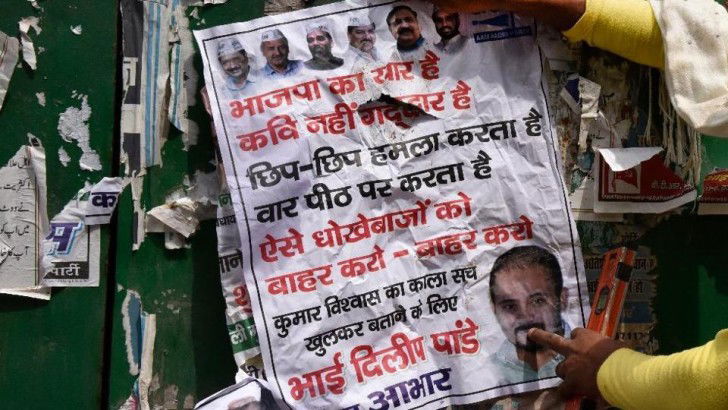 भाजपा का यार है
कवि नहीं गद्दार है
छिप-छिप हमला करता है
वार पीठ पर करता है
ऐसे धोखेबाजों को
बाहर करो - बाहर करो
कुमार विश्वास का काला सच
खुलकर बताने के लिए
भाई दिलीप पांडे
आभार
पार्टी